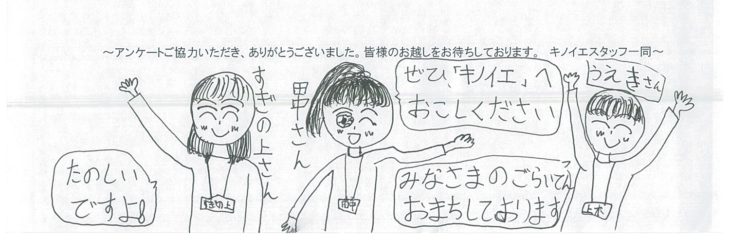 ～アンケートご協力いただき、ありがとうございました。皆様のお越しをお待ちしております。　キノイエスタッフ一同～
たのしい
ですよ!
すぎの上さん
すぎの上
田中さん
田中
ぜひ、「キノイエ」へ
おこしください
みなさまのごらいてん
おまちしております
うえきさん
上木